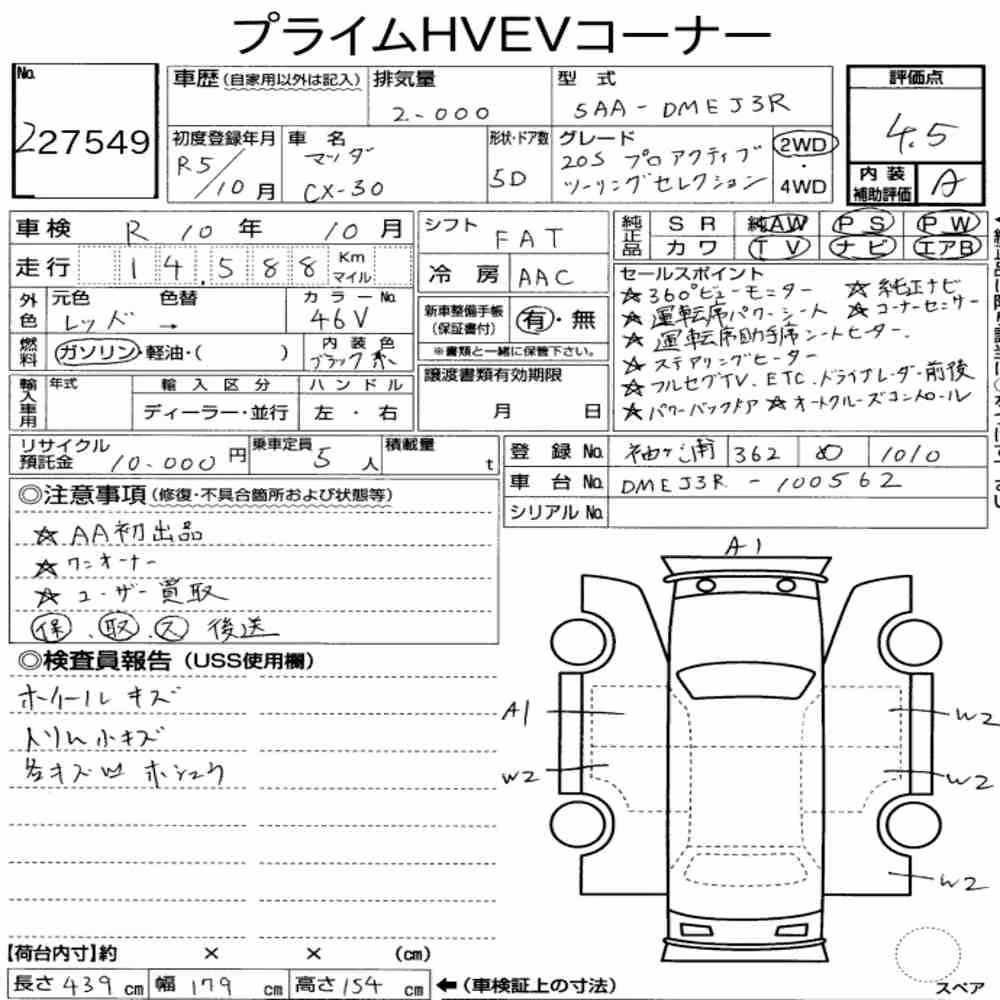 プライムHVEVコーナー
No. 227549
車歴(自家用以外は記入)
排気量 2-000
型式 5AA-DMEJ3R
評価点 4.5
初度登録年月 R5/10月
車名 マツダ CX-30
形状・ドア数 5D
グレード 20S プロアクティブ ツーリングセレクション
2WD・4WD
内装補助評価 A
車検 R 10年 10月
シフト FAT
純正品 SR 純AW PS PW
カワ TV ナビ エアB
走行 14.588 Km マイル
冷房 AAC
セールスポイント
☆360°ビューモニター ☆純正ナビ
☆運転席パワーシート ☆コーナーセンサー
☆運転席助手席シートヒーター.
☆ステアリングヒーター
☆フルセグTV.ETC.ドライブレーダー前後
☆パワーバックドア ☆オートクルーズコントロール
外色 元色 色替 カラーNo.
レッド → 46V
新車整備手帳(保証書付) 有・無
※書類と一緒に保管下さい。
燃料 ガソリン・軽油・( )
内装色 ブラック系
譲渡書類有効期限 月 日
輸入車用 年式 輸入区分 ハンドル
ディーラー・並行 左・右
リサイクル預託金 10.000円
乗車定員 5人
積載量 t
登録No. 袖ケ浦 362 め 1010
車台No. DMEJ3R - 100562
シリアルNo.
◎注意事項(修復・不具合箇所および状態等)
☆AA初出品
☆ワンオーナー
☆ユーザー買取
保.取.ス 後送
◎検査員報告(USS使用欄)
ホイール キズ
小キズ
各キズ凹
A1
A1
W2
W2
W2
W2
【荷台内寸】約 × × (cm)
長さ 439 cm 幅 179 cm 高さ 154 cm ←(車検証上の寸法)
スペア